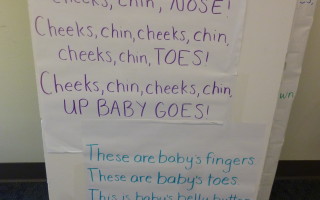 Cheeks, chin, NOSE!
Cheeks, chin, cheeks, chin,
cheeks, chin, TOES!
Cheeks, chin, cheeks, chin,
UP BABY GOES!
These are baby's fingers
These are baby's toes
This is baby's belly button